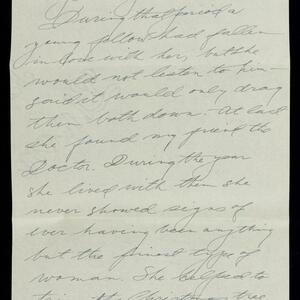 During that period a
young fellow had fallen
in love with her, but she
would not listen to him -
said it would only drag
them both down. At last
she found my friend the
Doctor. During the year
she lived with them she
never showed signs of
ever having been anything
but the finest type of
woman. She helped to
trim the Christmas tree